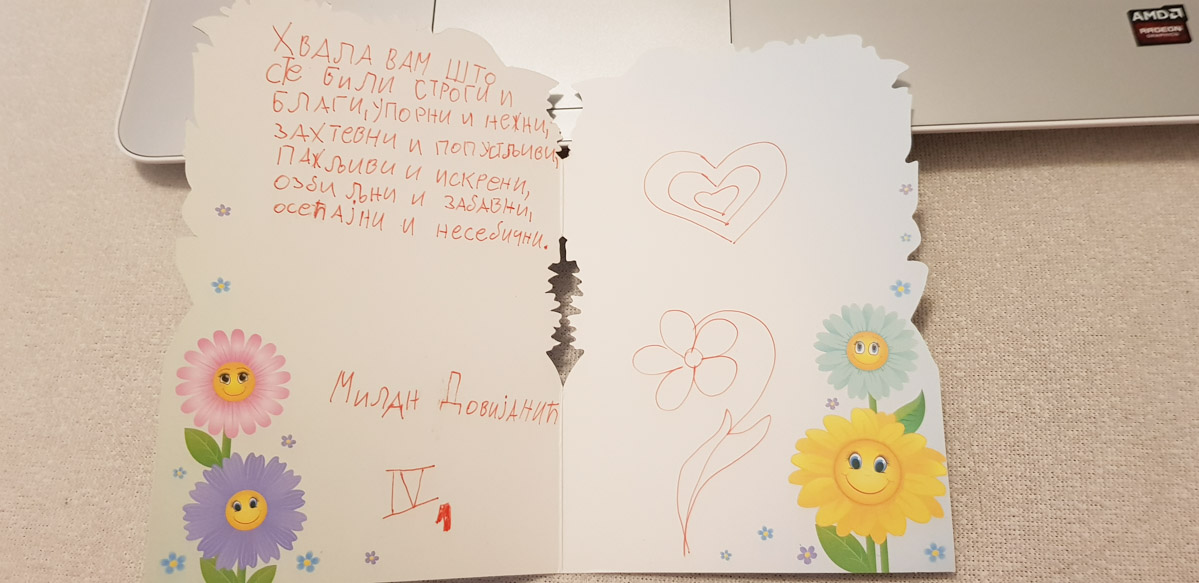 ХВАЛА ВАМ ШТО
СТЕ БИЛИ СТРОГИ И
БЛАГИ, УПОРНИ И НЕЖНИ,
ЗАХТЕВНИ И ПОПУСТЉИВИ,
ПАЖЉИВИ И ИСКРЕНИ,
ОЗБИЉНИ И ЗАБАВНИ,
ОСЕЋАЈНИ И НЕСЕБИЧНИ.
МИЛАН ДОВИЈАНИЋ
IV 1
AMD
RADEON
GRAPHICS